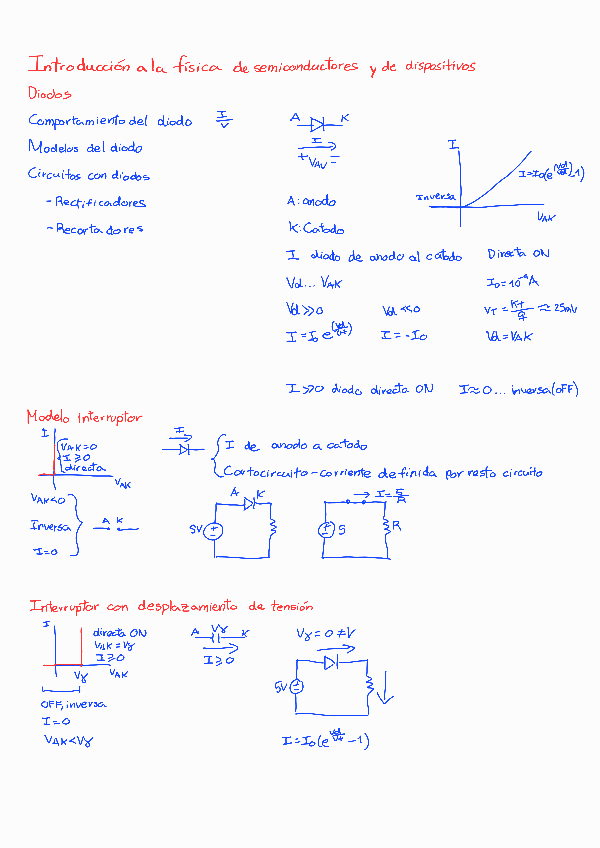 Introducción a la física de semiconductores y de dispositivos
Diodos
Comportamiento del diodo I/V
Modelos del diodo
Circuitos con diodos
- Rectificadores
- Recortadores
A K
I
+ VAV -
A: anodo
K: Catodo
I
Inversa
I=I0(e^(Vd/Vt)-1)
VAK
I diodo de anodo al catodo Directa ON
Vd... VAK I0=10^-9 A
Vd >> 0 Vd << 0 VT = KT/q ≈ 25mV
I = I0 e^(Vd/Vt) I = -I0 Vd=VAK
I >> 0 diodo directa ON I≈0... inversa (OFF)
Modelo interruptor
I
VAK=0
I≥0
directa
VAK
VAK<0
Inversa
I=0
A K
I
I de anodo a catodo
Cortocircuito - corriente definida por resto circuito
A K
5V
I = 5/R
5
R
Interruptor con desplazamiento de tensión
I
directa ON
VAK = Vγ
I≥0
Vγ VAK
OFF, inversa
I=0
VAK<Vγ
A Vγ K
I≥0
Vγ = 0 ≠ V
5V
I=I0(e^(Vd/Vt) -1)